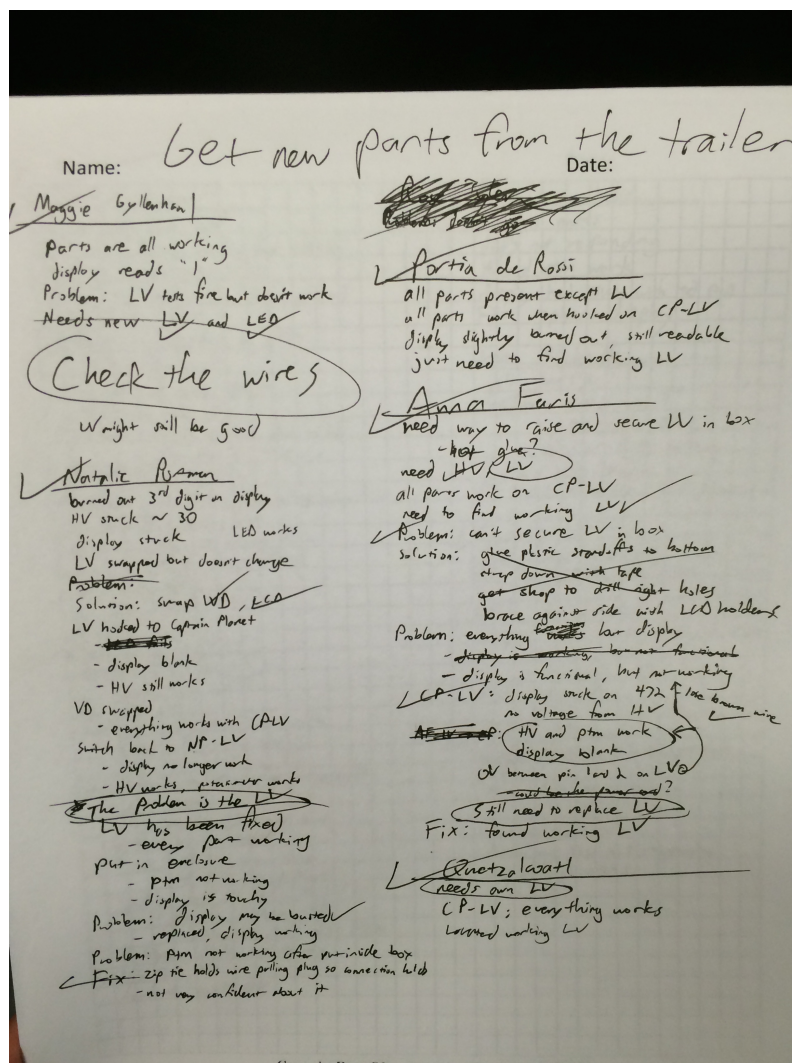 Get new parts from the trailer
Name:
Date:
Maggie Gyllenhaal
Parts are all working
display reads "1"
Problem: LV tests fine but doesn't work
Needs new LV and LED
Check the wires
LV might still be good
Natalie
burned out 3rd digit on display
HV stuck ~ 30
display stuck LED works
LV swapped but doesn't change
Problem:
Solution: swap VD, LCD
LV hooked to Captain Planet
- display blank
- HV still works
VD swapped
- everything works with CPLV
Switch back to NP-LV
- display no longer work
- HV works, works
The Problem is the LV
LV has been fixed
- every part working
Put in enclosure
- ptm not working
- display is touchy
Problem: display may be busted
- replaced, display working
Problem: ptm not working after put inside box
Fix: zip tie holds wire pulling plug so connection holds
- not very confident about it
Portia de Rossi
all parts present except LV
all parts work when hooked on CP-LV
display slightly burned out, still readable
just need to find working LV
Anna Faris
need way to raise and secure LV in box
- hot glue?
need HV, LV
all parts work on CP-LV
need to find working LV
Problem: can't secure LV in box
Solution: glue plastic standoffs to bottom
strap down with tape
get shop to drill right holes
brace against side with LCD holders
Problem: everything works but display
- display is working but not functional
- display is functional, but not working
CP-LV: display stuck on 472 lose brown wire
no voltage from HV
HV and ptm work
display blank
0V between pin 1 and 2 on LV
- could be the power cord?
Still need to replace LV
Fix: found working LV
Quetzalcoatl
needs own LV
CP-LV: everything works
Located working LV